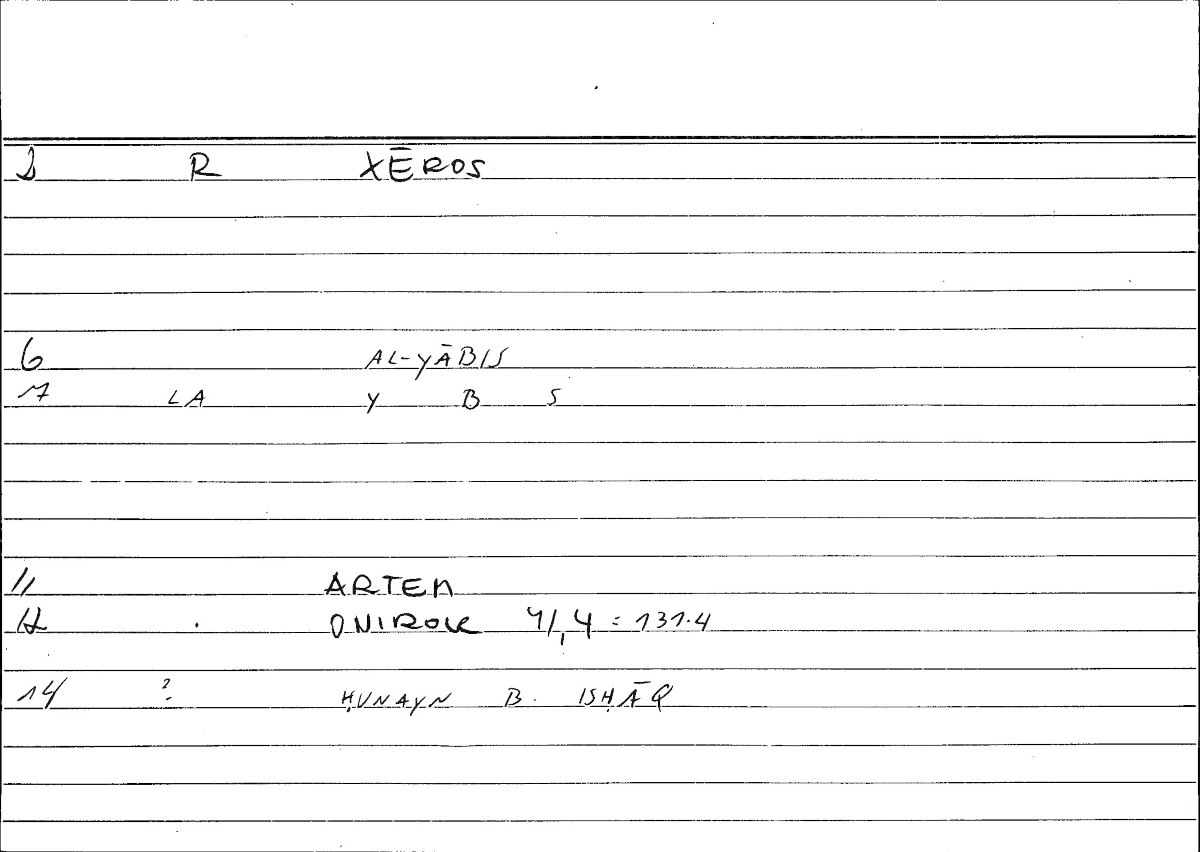 R XĒROS
6 AL-YĀBIS
7 LA Y B S
11 ARTEM
12 ONIROK 4/,4 = 131.4
14 ? ḤUNAYN B. ISḤĀQ